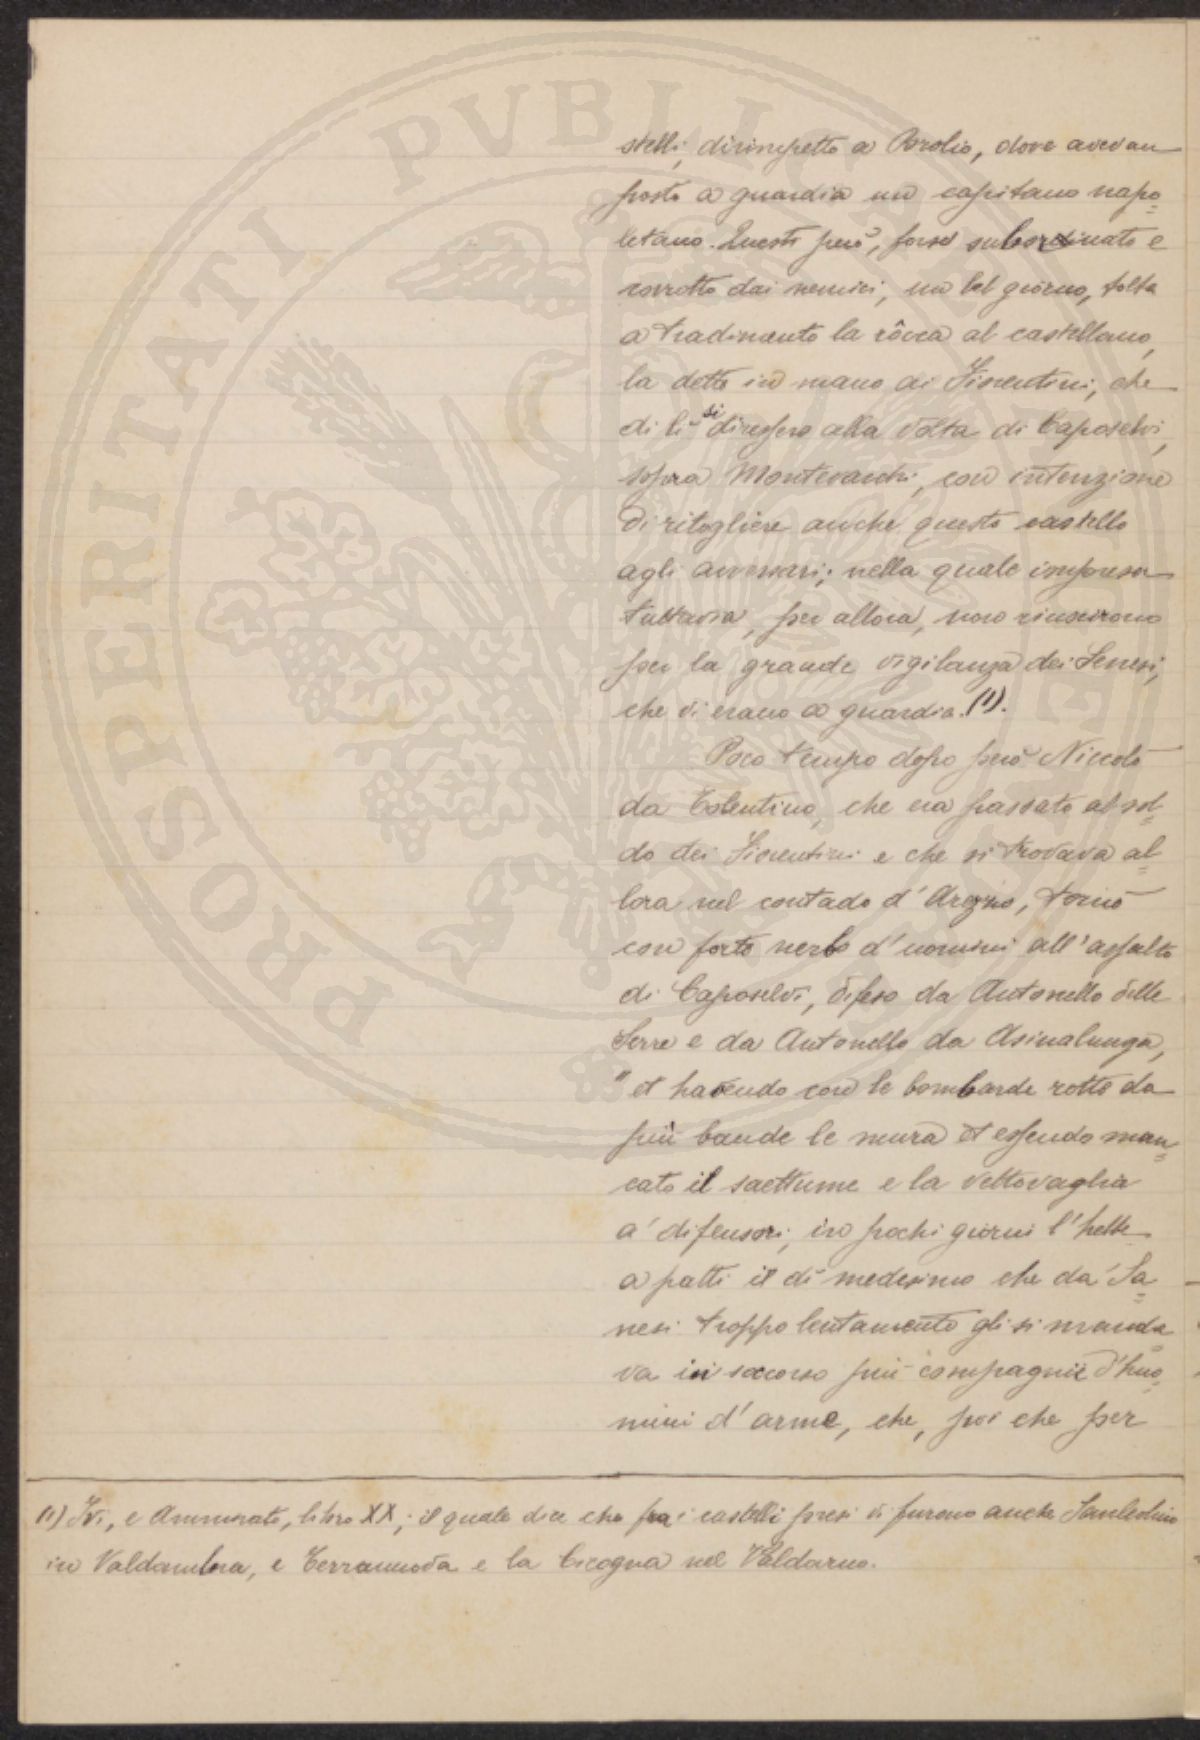 stelli, dirimpetto a Brolio, dove avevan
posto a guardia un capitano napo=
letano. Questi però, forse subordinato e
corrotto dai nemici, un bel giorno, tolta
a tradimento la rôcca al castellano,
la dette in mano ai Fiorentini, che
di lì si diressero alla volta di Caposelvi,
sopra Montevarchi, con intenzione
di ritogliere anche questo castello
agli avversari; nella quale impresa
tuttavia, per allora, non riuscirono
per la grande vigilanza dei Senesi,
che vi erano a guardia. (1).
Poco tempo dopo però Niccolò
da Tolentino, che era passato al sol=
do dei Fiorentini e che si trovava al=
lora nel contado d'Arezzo, tornò
con forte nerbo d'uomini all'assalto
di Caposelvi, difeso da Antonello delle
Serre e da Antonello da Asinalunga,
"et havendo con le bombarde rotte da
più bande le mura et essendo man=
cato il saettume e la vettovaglia
a' difensori, in pochi giorni l'hebbe
a patti il dì medesimo che da' Sa=
nesi troppo lentamente gli si manda=
va in soccorso più compagnie d'huo=
mini d'arme, che, poi che per
(1) Ivi, e Ammirato, libro XX; il quale dice che fra i castelli presi vi furono anche Sanleolino
in Valdambra, e Terranuova e la Cicogna nel Valdarno.
PROSPERITATI PVBLICAE